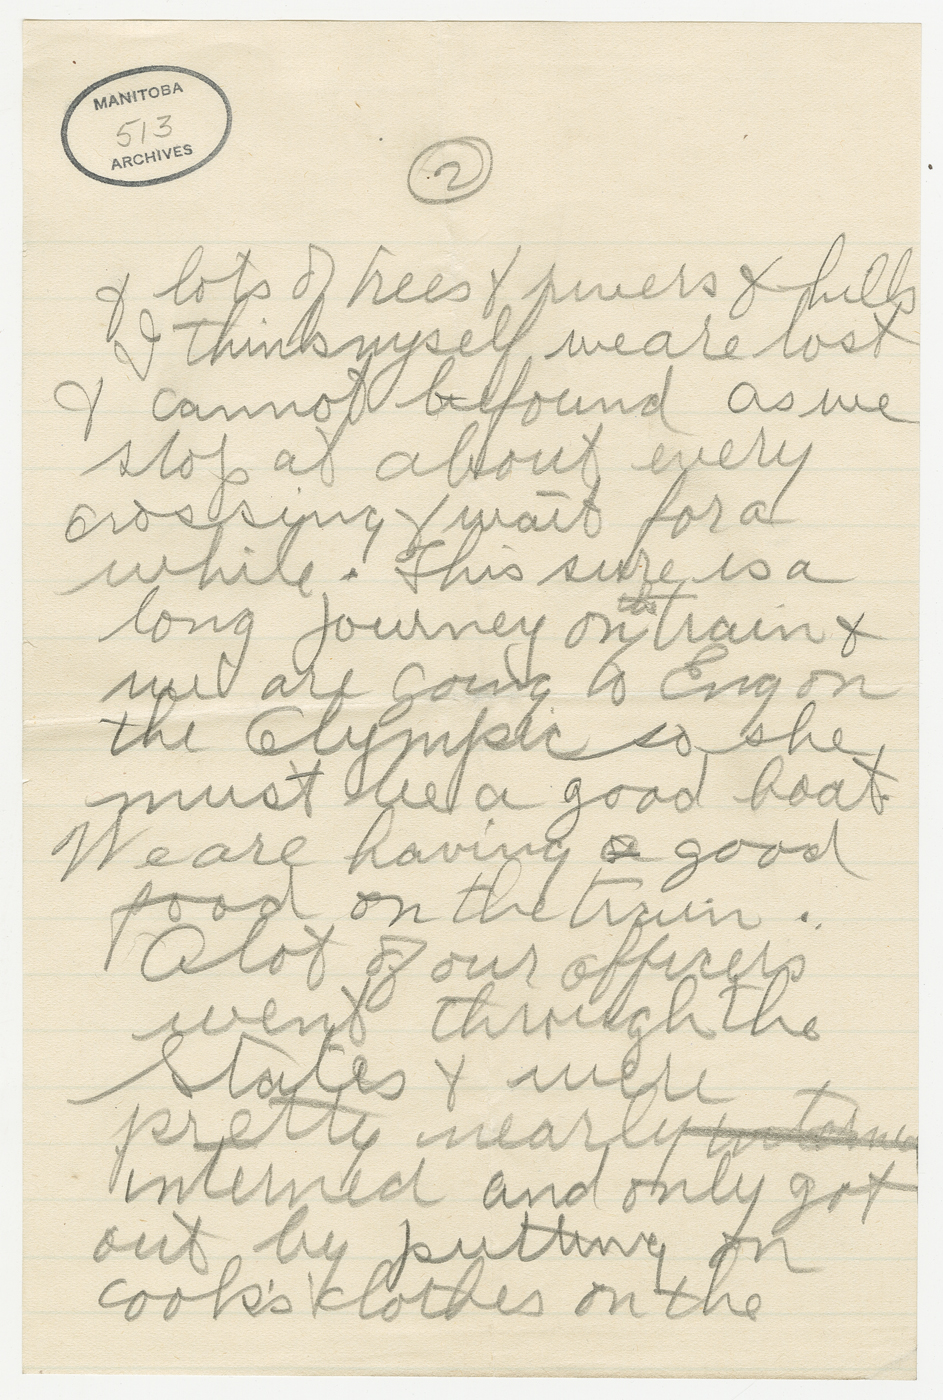 MANITOBA
513
ARCHIVES
2
& lots of trees & rivers & hills
I think myself we are lost
& cannot be found as we
stop at about every
crossing & wait for a
while. This sure is a
long journey on the train &
we are going to Eng on
the Olympic so she
must be a good boat.
We are having a good
food on the train.
A lot of our officers
went through the
States & were
pretty nearly interne
interned and only got
out by putting on
cook's clothes on the